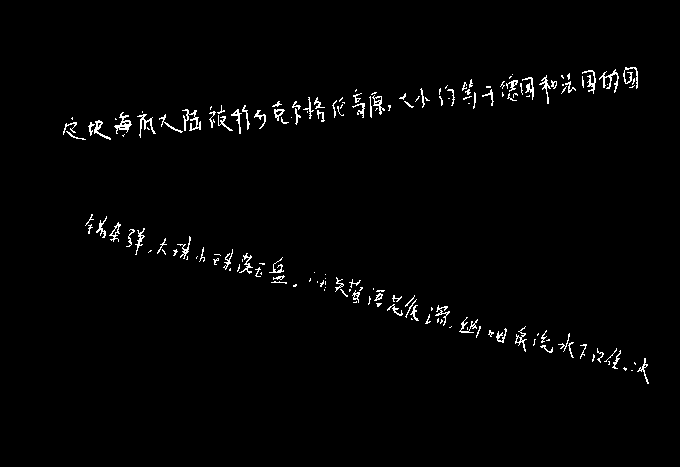 这块海底大陆被称为克尔格伦高原,大小约等于德国和法国的国
错杂弹,大珠小珠落玉盘。间关莺语花底滑,幽咽泉流水下沱。冰